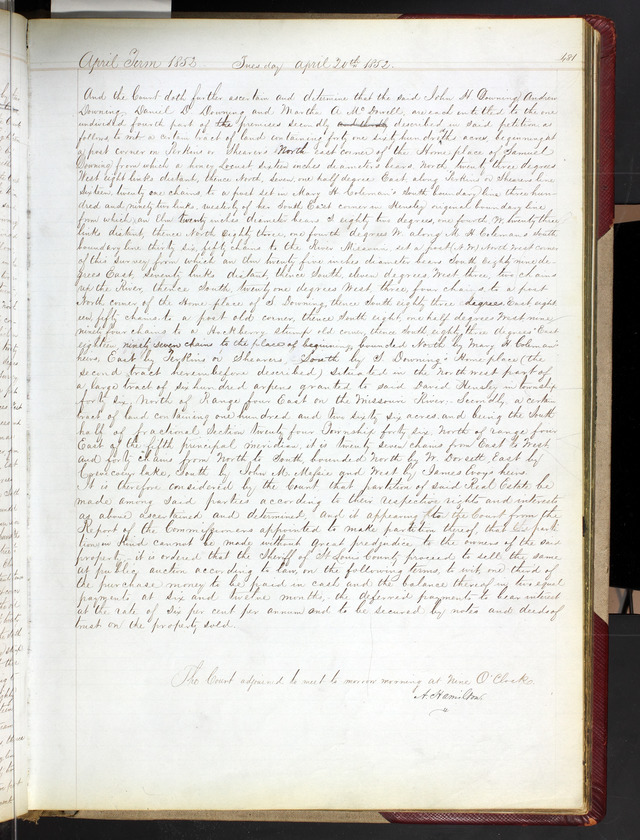 April Term 1852 Tuesday April 20th 1852. 481
And the Court doth further ascertain and determine that the said John H Downing Andrew
Downing, Daniel D. Downing and Martha A. McDowell, are each entitled to the one
undivided fourth part of the premises secondly and thirdly described in said petition as
follows to wit a certain tract of land containing forty and six hundredths acres, beginning at
a post corner on Perkins or Shearers North East corner of the Home place of Samuel
Downing from which a honey Locust sixteen inches diameter bears North twenty three degrees
West eight links distant, thence North seven one half degrees East along Perkins or Shearers line
Sixteen, twenty one chains, to a post set in Mary H Coleman's South boundary line three hun-
dred and ninety two links westerly of her South East corner on Hensley original boundary line
from which an Elm twenty inches diameter bears S eighty two degrees, one fourth W. twenty three
links distant, thence North Eighty three, one fourth degrees W along M H Colemans South
boundary line thirty six, fifty chains to the River Missouri, set a post (N W) North West corner
of this Survey from which an Elm twenty five inches diameter bears South Eighty nine de-
grees East Seventy links distant thence South eleven degrees West three, two chains
up the River, thence South twenty one degrees West three, four chains, to a post
North corner of the Home place of S Downing, thence South eighty three degrees East eight
een, fifty chains to a post old corner, thence South eight, one half degrees West nine,
ninety four chains to a Hackberry stump old corner, thence South eighty three degrees East
eighteen, ninety seven chains to the place of beginning, bounded North by Mary H Coleman
heirs, East by Perkins or Shearers South by S Downing's Home place (the
second tract hereinbefore described) Situated in the North west part of
a large tract of six hundred arpens granted to said David Hensley in township
forty six North of Range four East on the Missouri River. Secondly, a certain
tract of land containing one hundred and two sixty six acres, and being the South
half of fractional Section twenty four Township forty six, North of range four
East of the fifth principal meridian, it is twenty seven chains from East to West
and forty chains from North to South, bounded North by W. Dorsett East by
Creveceuy Lake, South by John M. Massie and West by James Crays heirs.
It is therefore considered by the Court that partition of said Real Estate be
made among said parties according to their respective rights and interests
as above ascertained and determined, and it appearing to the Court from the
Report of the Commissioners appointed to make partition thereof that in par-
tion in Kind cannot be made without great prejudice to the owners of the said
property, it is ordered that the Sheriff of St Louis County proceed to sell the same
at public auction according to law, on the following terms, to wit, one third of
the purchase money to be paid in cash and the balance thereof in two equal
payments at six and twelve months, the deferred payments to bear interest
at the rate of Six per cent per annum and to be secured by notes and deeds of
trust on the property sold.
The Court adjourned to meet to morrow morning at Nine O'Clock.
A. Hamilton